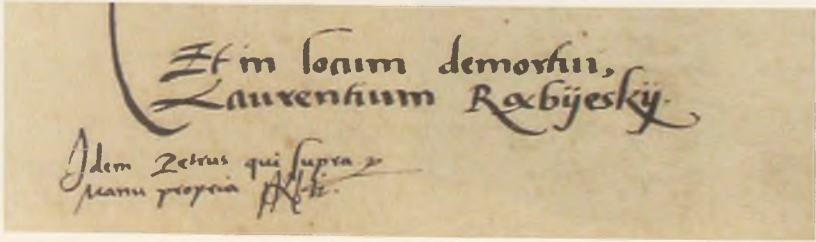 Et in locum demortui,
Laurentium Robijeskij.
Idem Petrus qui supra
Manu propria